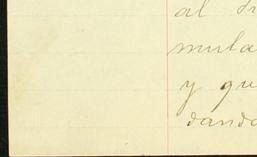 al
mula
y qu
dando